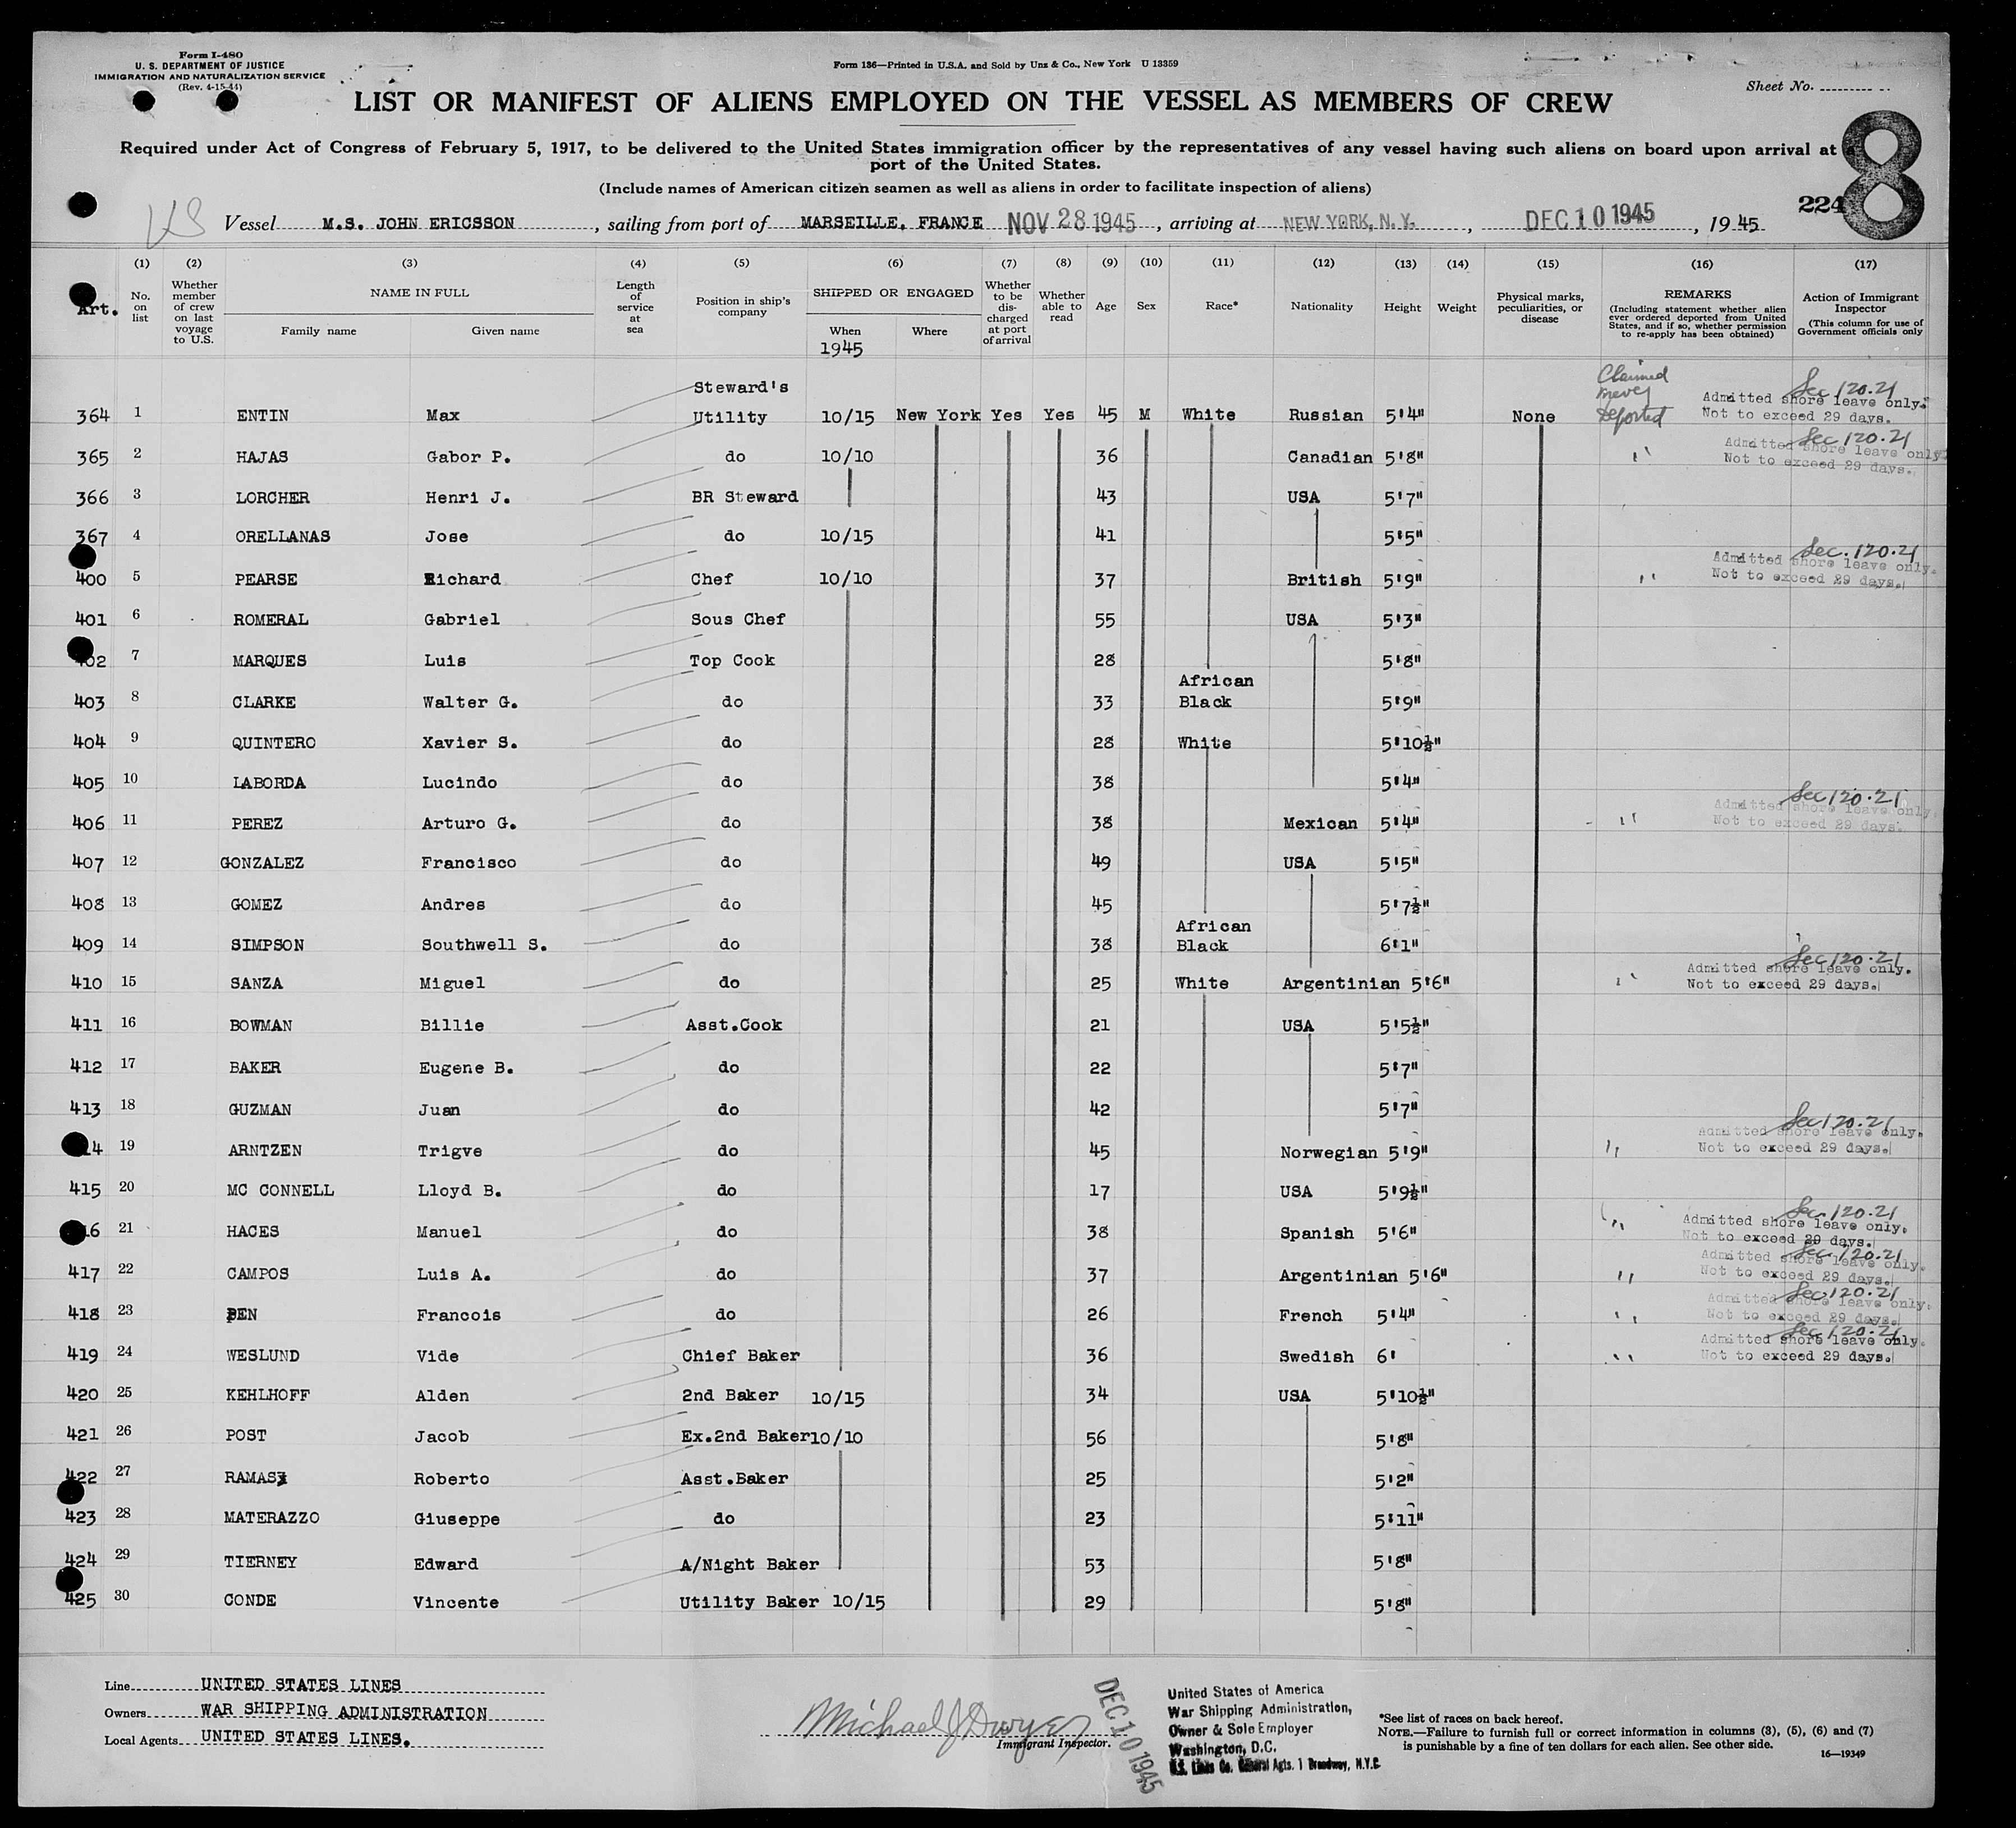 Form I-480
U. S. DEPARTMENT OF JUSTICE
IMMIGRATION AND NATURALIZATION SERVICE
(Rev. 4-15-44)
Form 136—Printed in U.S.A. and Sold by Unz & Co., New York U 13359
Sheet No.
LIST OR MANIFEST OF ALIENS EMPLOYED ON THE VESSEL AS MEMBERS OF CREW
8
Required under Act of Congress of February 5, 1917, to be delivered to the United States immigration officer by the representatives of any vessel having such aliens on board upon arrival at a
port of the United States.
(Include names of American citizen seamen as well as aliens in order to facilitate inspection of aliens)
224
US Vessel M.S. JOHN ERICSSON, sailing from port of MARSEILLE, FRANCE NOV 28 1945, arriving at NEW YORK, N.Y., DEC 10 1945, 1945
Art.
(1) No. on list
(2) Whether member of crew on last voyage to U.S.
(3) NAME IN FULL Family name Given name
(4) Length of service at sea
(5) Position in ship's company
(6) SHIPPED OR ENGAGED When 1945 Where
(7) Whether to be discharged at port of arrival
(8) Whether able to read
(9) Age
(10) Sex
(11) Race*
(12) Nationality
(13) Height
(14) Weight
(15) Physical marks, peculiarities, or disease
(16) REMARKS (Including statement whether alien ever ordered deported from United States, and if so, whether permission to re-apply has been obtained)
(17) Action of Immigrant Inspector (This column for use of Government officials only
364 1 ENTIN Max Steward's Utility 10/15 New York Yes Yes 45 M White Russian 5'4" None Claimed never deported Sec 120.21 Admitted shore leave only. Not to exceed 29 days.
365 2 HAJAS Gabor P. do 10/10 36 Canadian 5'8" " Sec 120.21 Admitted shore leave only. Not to exceed 29 days.
366 3 LORCHER Henri J. BR Steward 43 USA 5'7"
367 4 ORELLANAS Jose do 10/15 41 5'5"
400 5 PEARSE Richard Chef 10/10 37 British 5'9" " Sec. 120.21 Admitted shore leave only. Not to exceed 29 days.
401 6 ROMERAL Gabriel Sous Chef 55 USA 5'3"
402 7 MARQUES Luis Top Cook 28 5'8"
403 8 CLARKE Walter G. do 33 African Black 5'9"
404 9 QUINTERO Xavier S. do 28 White 5'10½"
405 10 LABORDA Lucindo do 38 5'4"
406 11 PEREZ Arturo G. do 38 Mexican 5'4" " Sec 120.21 Admitted shore leave only. Not to exceed 29 days.
407 12 GONZALEZ Francisco do 49 USA 5'5"
408 13 GOMEZ Andres do 45 5'7½"
409 14 SIMPSON Southwell S. do 38 African Black 6'1"
410 15 SANZA Miguel do 25 White Argentinian 5'6" " Sec 120.21 Admitted shore leave only. Not to exceed 29 days.
411 16 BOWMAN Billie Asst.Cook 21 USA 5'5½"
412 17 BAKER Eugene B. do 22 5'7"
413 18 GUZMAN Juan do 42 5'7"
14 19 ARNTZEN Trigve do 45 Norwegian 5'9" " Sec 120.21 Admitted shore leave only. Not to exceed 29 days.
415 20 MC CONNELL Lloyd B. do 17 USA 5'9½"
16 21 HACES Manuel do 38 Spanish 5'6" " Sec. 120.21 Admitted shore leave only. Not to exceed 29 days.
417 22 CAMPOS Luis A. do 37 Argentinian 5'6" " Sec. 120.21 Admitted shore leave only. Not to exceed 29 days.
418 23 PEN Francois do 26 French 5'4" " Sec 120.21 Admitted shore leave only. Not to exceed 29 days.
419 24 WESLUND Vide Chief Baker 36 Swedish 6' " Sec 120.21 Admitted shore leave only. Not to exceed 29 days.
420 25 KEHLHOFF Alden 2nd Baker 10/15 34 USA 5'10½"
421 26 POST Jacob Ex.2nd Baker 10/10 56 5'8"
422 27 RAMAS Roberto Asst.Baker 25 5'2"
423 28 MATERAZZO Giuseppe do 23 5'11"
424 29 TIERNEY Edward A/Night Baker 53 5'8"
425 30 CONDE Vincente Utility Baker 10/15 29 5'8"
Line UNITED STATES LINES
Owners WAR SHIPPING ADMINISTRATION
Local Agents UNITED STATES LINES.
Michael J Dwyer
Immigrant Inspector.
DEC 10 1945
United States of America
War Shipping Administration,
Owner & Sole Employer
Washington, D.C.
U.S. Lines Co. General Agts. 1 Broadway, N.Y.C.
*See list of races on back hereof.
NOTE.—Failure to furnish full or correct information in columns (3), (5), (6) and (7)
is punishable by a fine of ten dollars for each alien. See other side.
16—19349